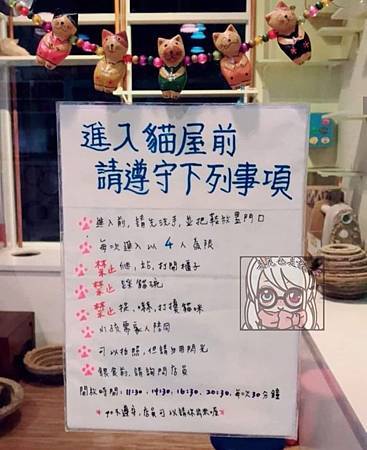 進入貓屋前
請遵守下列事項
進入前,請先洗手,並把鞋放置門口
每次進入以 4 人為限
禁止 站、打開櫃子
禁止 踩貓碗
禁止 打擾貓咪
小孩需家人陪同
可以拍照,但請勿用閃光
餵食前,請詢問店員
開放時間:11:30、14:30、16:30、20:30,每次30分鐘
*如不遵守,店員可以請你出來喔*